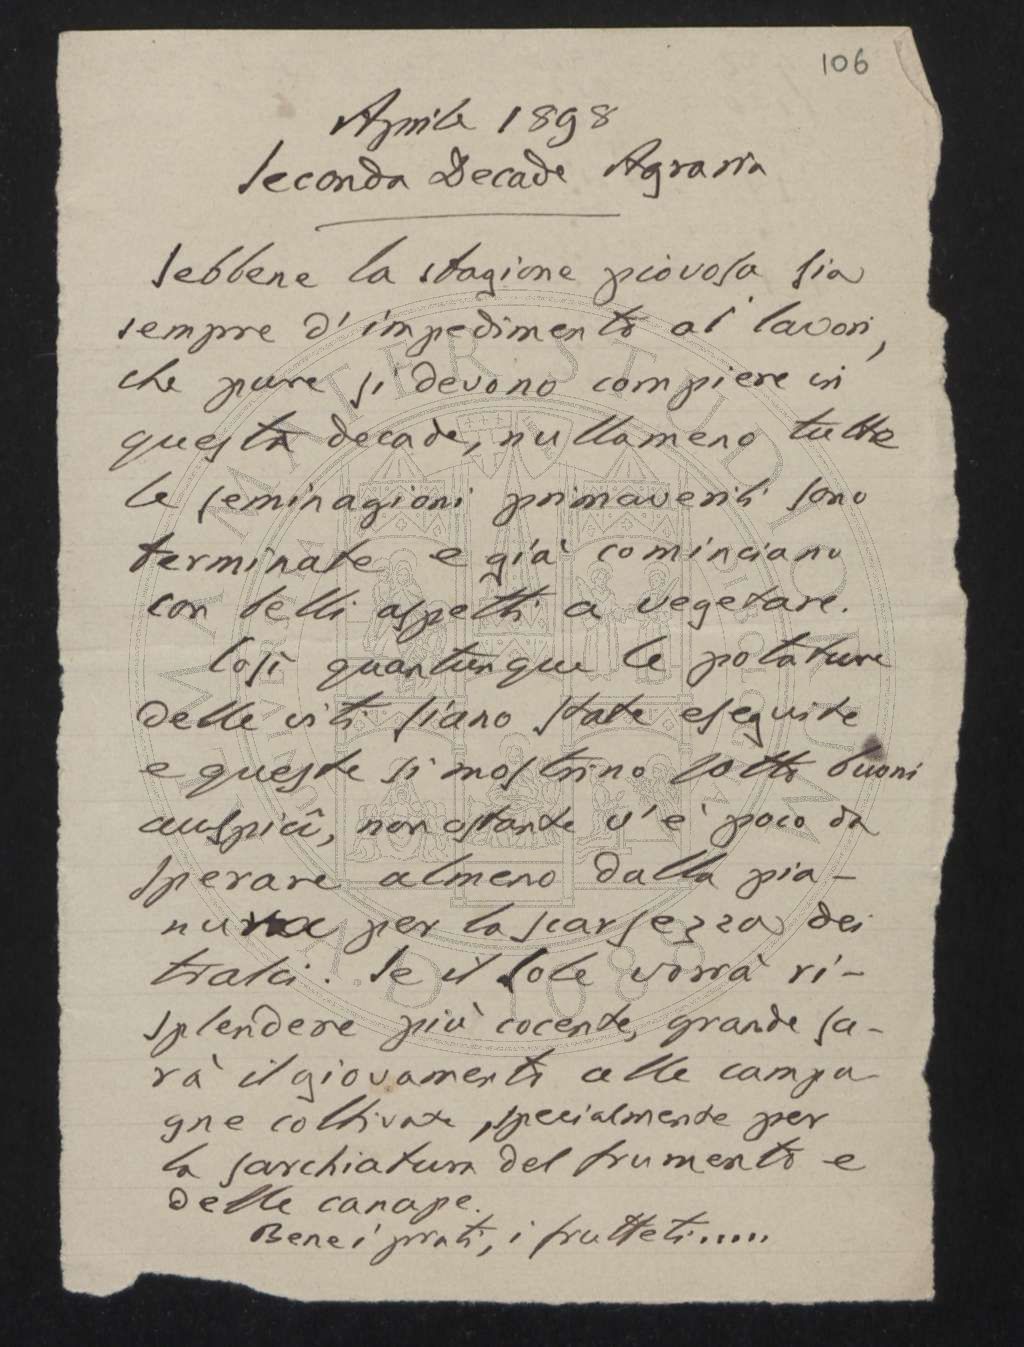 106
Aprile 1898
Seconda Decade Agraria
Sebbene la stagione piovosa sia
sempre d'impedimento ai lavori,
che pure si devono compiere in
questa decade, nullameno tutte
le seminagioni primaverili sono
terminate e già cominciano
con belli aspetti a vegetare.
Così quantunque le potature
delle viti siano state eseguite
e queste si mostrino sotto buoni
auspicî, nonostante v'è poco da
sperare almeno dalla pia-
nura per la scarsezza dei
tralci. Se il sole vorrà ri-
splendere più cocente, grande sa-
rà il giovamento alle campa
gne coltivate, specialmente per
la sarchiatura del frumento e
delle canape.
Bene i prati, i frutteti.....
ALMA MATER STUDIORUM
A.D. 1088